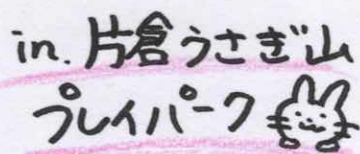 in. 片倉うさぎ山
プレイパーク